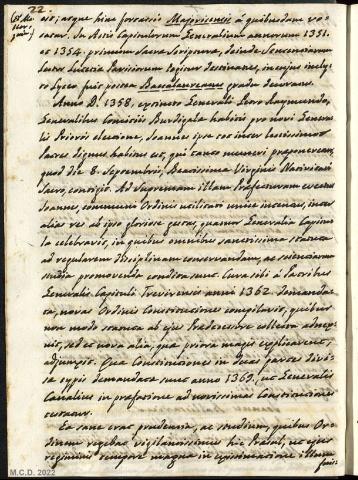 22.
sis; atque hinc forsassis Majoricensis à quibusdam vo-
catur. In Actis Capitulorum Generalium annorum 1351.
et 1354. primum Sacra Scriptura, deinde Sententiarum
Lector Lutetia Parisiorum legitur destinatus, in cujus incly-
to Lyceo fuit postea Baccalaureatus gradu decoratus.
Anno D. 1358. extincto Generali Petro Raymundo,
Generalibus Comitiis Burdigalæ habitis pro novi Genera-
lis Prioris electione, Joannes ipse cæ inter lectissimos
Patres dignus habitus est, qui tanto muneri præponeretur,
quod die 8. Septembris, Beatissimæ Virginis Nativitati
Sacro, contigit. Ad Supremam illam Præfecturam evectus
Joannes, communi Ordinis utilitati unice intentus, inter
alias res ab ipso gloriose gestas, quatuor Generalia Capitu-
la celebravit, in quibus omnibus sanctissima statuta
ad regularem disciplinam conservandam, ac scientiarum
studia promovenda condita sunt. Cura sibi à Patribus
Generalis Capituli Trevirensis anni 1362. demanda-
ta, novas Ordinis Constitutiones compilavit, quibus
non modo statuta ab ejus Prædecessore collecta adnexu-
it, sed et nova alia, quæ priora magis explicarent,
adjunxit. Quæ Constitutiones in duas partes divisæ
typis demandatæ sunt anno 1369, ut Generalis
Canalius in præfatione ad novissimas Constitutiones
testatur.
Ea sane erat prudentia, ac studium, quibus Or-
dinem regebat vigilantissimus hic Præsul, ut ejus
regiminis tempore magna in existimatione illum
fuis-
M.C.D. 2022